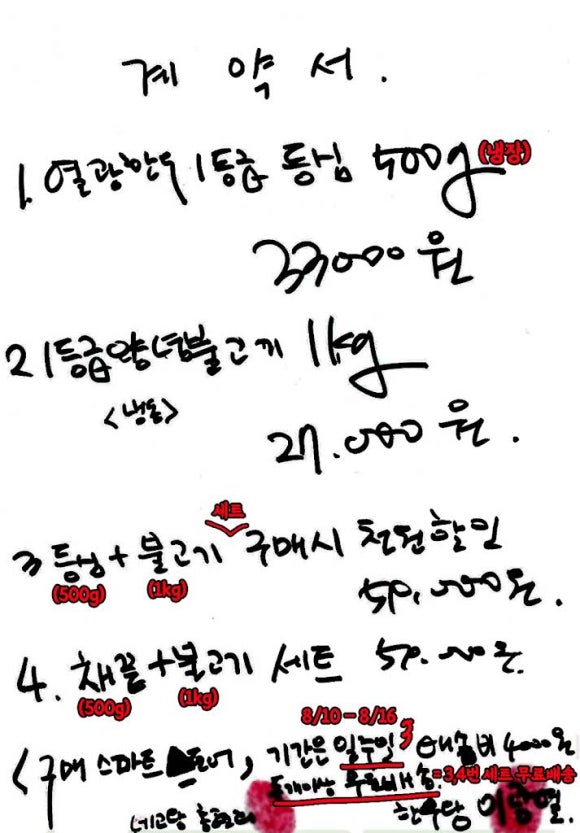 계 약 서 .
1. 열광한우 1등급 등심 500g (냉장)
33000 원
2 1등급양념불고기 1kg
<냉동>
27.000 원 .
세트
3 등심 + 불고기 구매시 천원할인
(500g) (1kg)
59,000원 .
4. 채끝+불고기 세트 59.000원
(500g) (1kg)
8/10 – 8/16
<구매 스마트 스토어, 기간은 일주일 배송비 4000원
두개이상 무료배송. =3,4번 세트 무료배송
네고왕 한우당